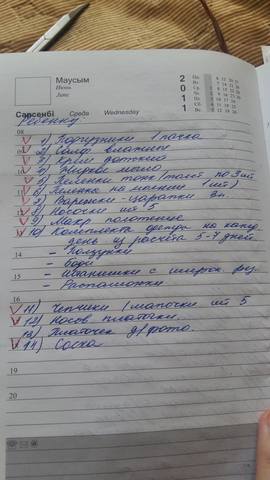 Маусым
Июнь
June
2
0
1
1
Сәрсенбі Среда Wednesday
Ребенку
08
1) Подгузники 1 пачка
2) Салф. влажные
3) Крем детский
4) Жидкое мыло
5) Пеленки тонк/толст по 3 шт
6) Пеленка на молнии (1 шт)
7) Варежки-царапки 3п.
8) Носочки шт 3
9) Махр. полотенце
10) Комплекта одежды на кажд.
день из расчета 5-7 дней
14 - Ползунки
- Боди
15 - Штанишки с широк. рез.
- Распашонки
16
11) Чепчики / шапочки шт 5
12) Носов. платочки.
13) Платочек д/фото.
14) Соска
19
20